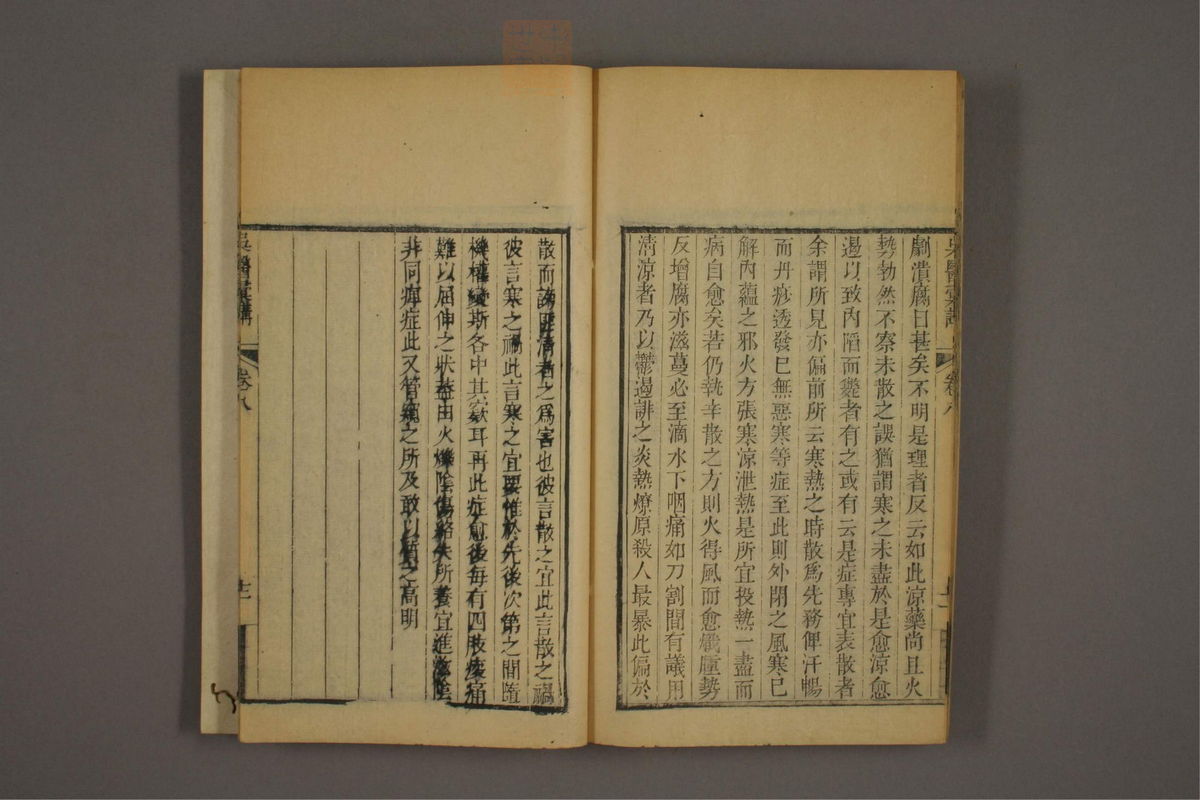 劇潰腐日甚矣不明是理者反云如此涼藥尚且火
勢勃然不察未散之誤猶謂寒之未盡於是愈涼愈
遏以致內陷而斃者有之或有云是症專宜表散者
余謂所見亦偏前所云寒熱之時散爲先務俾汗暢
而丹痧透發已無惡寒等症至此則外閉之風寒已
解內蘊之邪火方張寒涼泄熱是所宜投熱一盡而
病自愈矣若仍執辛散之方則火得風而愈熾腫勢
反增腐亦滋蔓必至滴水下咽痛如刀割間有議用
清涼者乃以鬱遏誹之炎熱燎原殺人最暴此偏於
散而謗匪清者之爲害也彼言散之宜此言散之禍
彼言寒之禍此言寒之宜要惟於先後次第之間隨
機權變斯各中其窾耳再此症愈後每有四肢痠痛
難以屈伸之狀蓋由火爍陰傷絡失所養宜進滋陰
非同痺症此又管窺之所及敢以質之高明
吳醫彙講
卷八
吳醫彙講
卷八